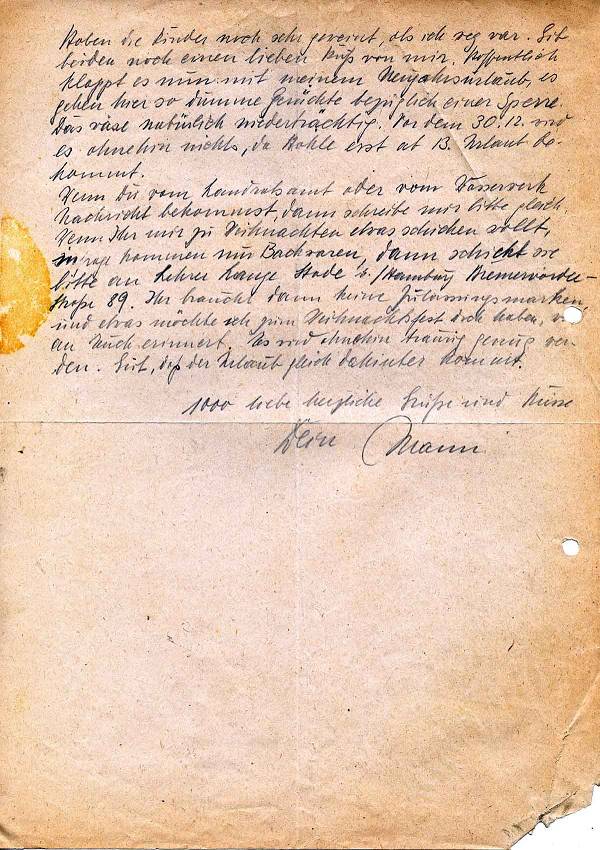 Haben die Kinder noch sehr geweint, als ich weg war. Gib
beiden noch einen lieben Kuß von mir. Hoffentlich
klappt es nun mit meinem Neujahrsurlaub, es
gehen hier so dumme Gerüchte bezüglich einer Sperre.
Das wäre natürlich niederträchtig. Vor dem 30.12. wird
es ohnehin nichts, da Kohle erst ab 13. Urlaub be-
kommt.
Wenn Du vom Landratsamt oder vom Wasserwerk
Nachricht bekommst, dann schreibe mir bitte gleich.
Wenn Ihr mir zu Weihnachten etwas schicken wollt,
infrage kommen nur Backwaren, dann schickt sie
bitte an Lehrer Lange Stade b./Hamburg Bremervörder-
straße 89. Ihr braucht dann keine Zulassungsmarken,
und etwas möchte ich zum Weihnachtsfest doch haben, was
an Euch erinnert. Es wird ohnehin traurig genug wer-
den. Gut, daß der Urlaub gleich dahinter kommt.
1000 liebe herzliche Grüße und Küsse
Dein Mann